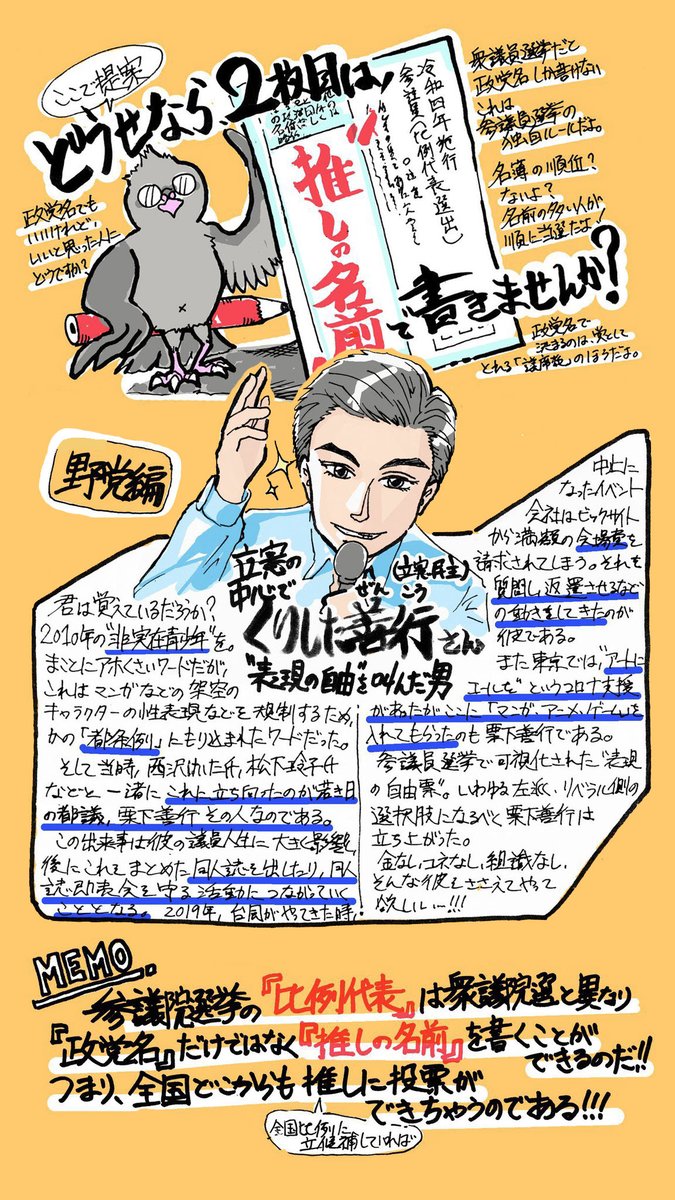 ここで提案
どうせなら、2枚目は、
"推しの名前"
で書きませんか?
令和四年施行
参議員(比例代表選出)
衆議員選挙だと
政党名しか書けない
これは
参議員選挙の
独自ルールだよ。
名簿の順位?
ないよ?
名前の多い人が
順に当選だよ!
政党名でも
いいけれど、
いいと思った人に
どうですか?
政党名で
決まるのは、党として
とれる「議席数」のほうだよ。
野党編
立憲の
中心で
(立憲民主)
ぜんこう
くりした善行さん
"表現の自由"を叫んだ男
君は覚えているだろうか?
2010年の"非実在青少年"を。
まことにアホくさいワードだが、
これはマンガなどの架空の
キャラクターの性表現などを規制するため
かの「都条例」にもり込まれたワードだった。
そして当時、西沢けいた氏、松下玲子氏
などと一緒にこれに立ち向ったのが若き日
の都議、栗下善行その人なのである。
この出来事は彼の議員人生に大きく影響
後にこれをまとめた同人誌を出したり、同人
誌即売会を守る活動につながっていく
こととなる。2019年、台風がやってきた時、
中止に
なったイベント
会社はビックサイト
から満額の会場費を
請求されてしまう。それを
質問し返還させるなど
の動きをしてきたのが
彼である。
また東京では、"アートに
エールを"というコロナ支援
があったがここに「マンガ、アニメ、ゲーム」を
入れてもらったのも栗下善行である。
参議員選挙で可視化された"表現
の自由票"。いわゆる左派、リベラル側の
選択肢になるべく栗下善行は
立ち上がった。
金なし、コネなし、組織なし、
そんな彼をささえてやって
欲しいー!!!
MEMO.
参議院選挙の『比例代表』は衆議院選と異なり
『政党名』だけではなく『推しの名前』を書くことが
できるのだ!!
つまり、全国どこからも推しに投票が
できちゃうのである!!!
全国比例に
立候補していれば